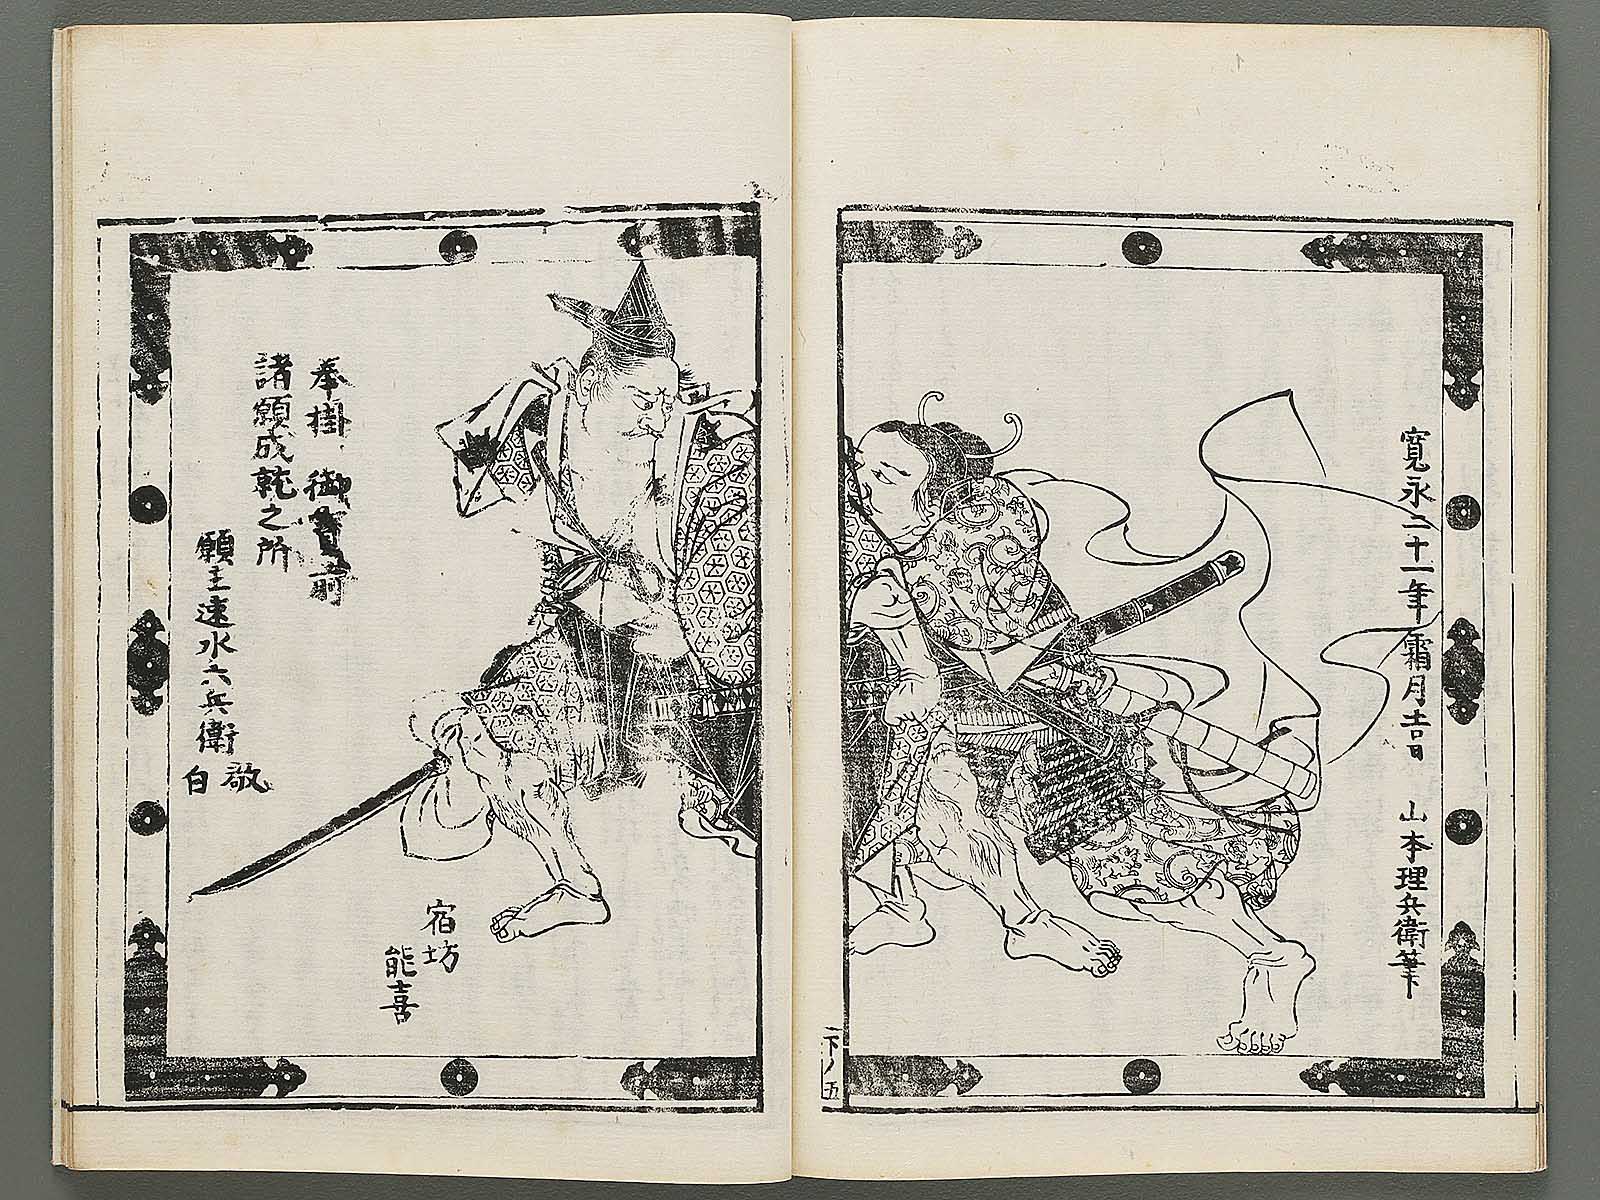 寛永二十一年霜月吉日　山本理兵衛筆
奉掛　御宝前
諸願成就之所
願主速水六兵衛
敬白
宿坊
能喜
下ノ五